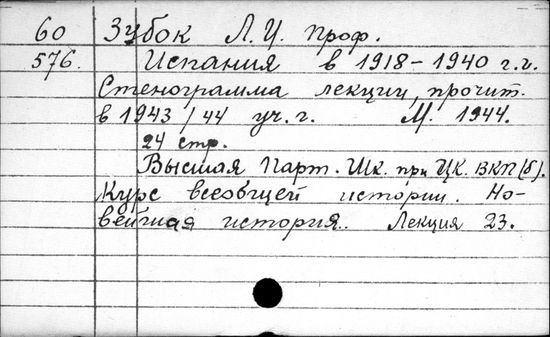 60 Зубок Л. И. проф.
576. Испания в 1918-1940 г.г.
Стенограмма лекции, прочит.
в 1943/44 уч. г. М. 1944.
24 стр.
Высшая Парт. Шк. при ЦК. ВКП(б).
Курс всеобщей истории. Но-
вейшая история. Лекция 23.